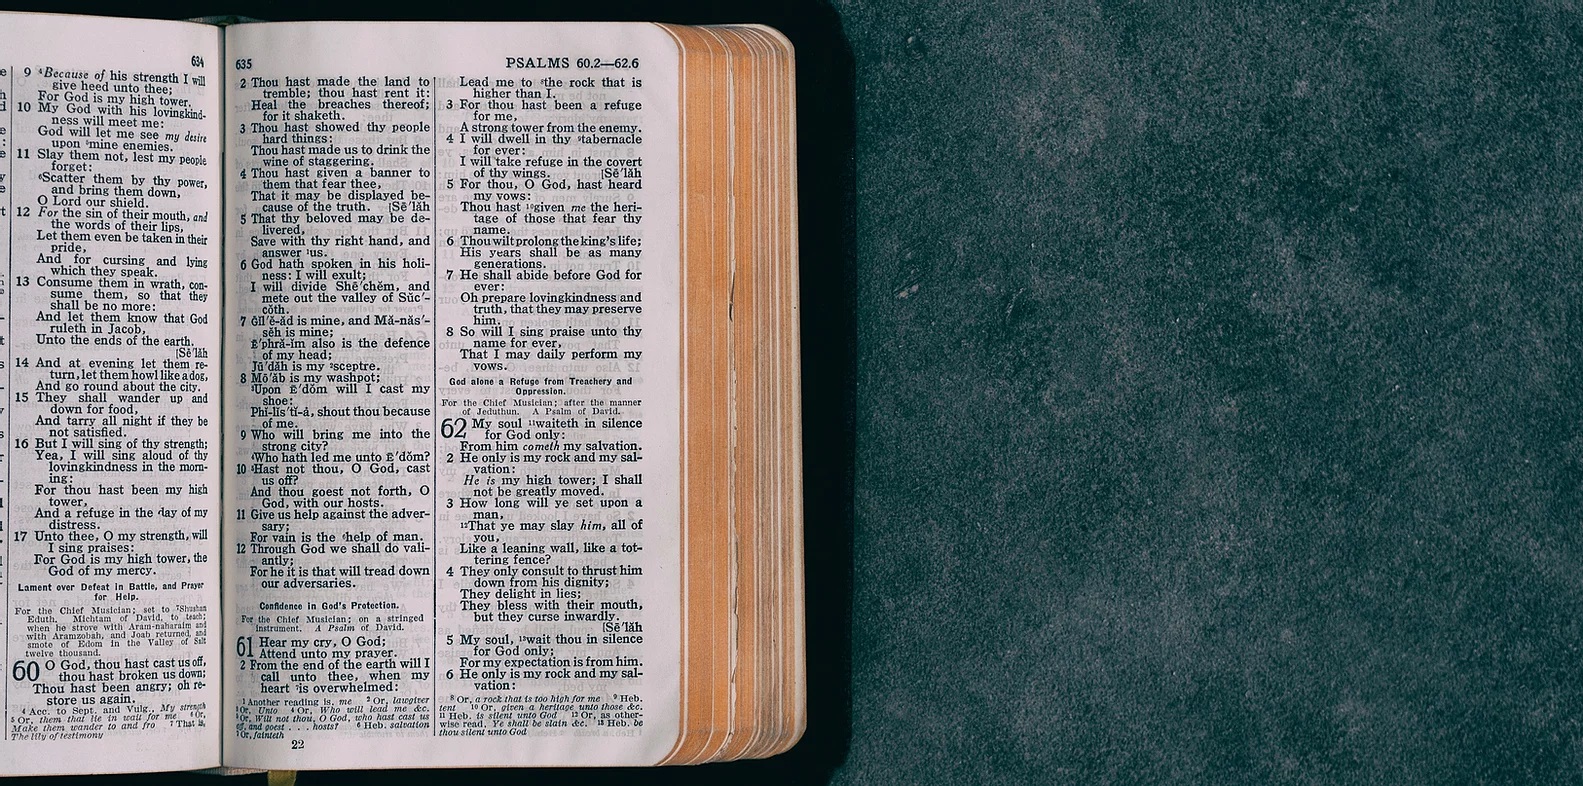 634
9 ⁴Because of his strength I will
give heed unto thee;
For God is my high tower.
10 My God with his lovingkind-
ness will meet me:
God will let me see my desire
upon ⁵mine enemies.
11 Slay them not, lest my people
forget:
⁶Scatter them by thy power,
and bring them down,
O Lord our shield.
12 For the sin of their mouth, and
the words of their lips,
Let them even be taken in their
pride,
And for cursing and lying
which they speak.
13 Consume them in wrath, con-
sume them, so that they
shall be no more:
And let them know that God
ruleth in Jacob,
Unto the ends of the earth.
[Sē′lăh
14 And at evening let them re-
turn, let them howl like a dog,
And go round about the city.
15 They shall wander up and
down for food,
And tarry all night if they be
not satisfied.
16 But I will sing of thy strength;
Yea, I will sing aloud of thy
lovingkindness in the morn-
ing:
For thou hast been my high
tower,
And a refuge in the day of my
distress.
17 Unto thee, O my strength, will
I sing praises:
For God is my high tower, the
God of my mercy.
Lament over Defeat in Battle, and Prayer
for Help.
For the Chief Musician; set to ⁷Shushan
Eduth. Michtam of David, to teach;
when he strove with Aram-naharaim and
with Aramzobah, and Joab returned, and
smote of Edom in the Valley of Salt
twelve thousand.
60 O God, thou hast cast us off,
thou hast broken us down;
Thou hast been angry; oh re-
store us again.
⁴ Acc. to Sept. and Vulg., My strength
⁵ Or, them that lie in wait for me ⁶ Or,
Make them wander to and fro ⁷ That is,
The lily of testimony
635
PSALMS 60.2—62.6
2 Thou hast made the land to
tremble; thou hast rent it:
Heal the breaches thereof;
for it shaketh.
3 Thou hast showed thy people
hard things:
Thou hast made us to drink the
wine of staggering.
4 Thou hast given a banner to
them that fear thee,
That it may be displayed be-
cause of the truth. [Sē′lăh
5 That thy beloved may be de-
livered,
Save with thy right hand, and
answer ¹us.
6 God hath spoken in his holi-
ness: I will exult;
I will divide Shē′chĕm, and
mete out the valley of Sŭc′-
cŏth.
7 Gĭl′ĕ-ăd is mine, and Má-năs′-
sĕh is mine;
Ē′phră-ĭm also is the defence
of my head;
Jū′dăh is my ²sceptre.
8 Mō′ăb is my washpot;
³Upon Ē′dŏm will I cast my
shoe:
Phĭ-lĭs′tĭ-á, shout thou because
of me.
9 Who will bring me into the
strong city?
⁴Who hath led me unto Ē′dŏm?
10 ⁵Hast not thou, O God, cast
us off?
And thou goest not forth, O
God, with our hosts.
11 Give us help against the adver-
sary;
For vain is the ⁶help of man.
12 Through God we shall do vali-
antly;
For he it is that will tread down
our adversaries.
Confidence in God's Protection.
For the Chief Musician; on a stringed
instrument. A Psalm of David.
61 Hear my cry, O God;
Attend unto my prayer.
2 From the end of the earth will I
call unto thee, when my
heart ⁷is overwhelmed:
¹ Another reading is, me ² Or, lawgiver
³ Or, Unto ⁴ Or, Who will lead me &c.
⁵ Or, Wilt not thou, O God, who hast cast us
off, and goest . . . hosts? ⁶ Heb. salvation
⁷ Or, fainteth
22
Lead me to ⁸the rock that is
higher than I.
3 For thou hast been a refuge
for me,
A strong tower from the enemy.
4 I will dwell in thy ⁹tabernacle
for ever:
I will take refuge in the covert
of thy wings. [Sē′lăh
5 For thou, O God, hast heard
my vows:
Thou hast ¹⁰given me the heri-
tage of those that fear thy
name.
6 Thou wilt prolong the king's life;
His years shall be as many
generations.
7 He shall abide before God for
ever:
Oh prepare lovingkindness and
truth, that they may preserve
him.
8 So will I sing praise unto thy
name for ever,
That I may daily perform my
vows.
God alone a Refuge from Treachery and
Oppression.
For the Chief Musician; after the manner
of Jeduthun. A Psalm of David.
62 My soul ¹¹waiteth in silence
for God only:
From him cometh my salvation.
2 He only is my rock and my sal-
vation:
He is my high tower; I shall
not be greatly moved.
3 How long will ye set upon a
man,
¹²That ye may slay him, all of
you,
Like a leaning wall, like a tot-
tering fence?
4 They only consult to thrust him
down from his dignity;
They delight in lies;
They bless with their mouth,
but they curse inwardly.
[Sē′lăh
5 My soul, ¹³wait thou in silence
for God only;
For my expectation is from him.
6 He only is my rock and my sal-
vation:
⁸ Or, a rock that is too high for me ⁹ Heb.
tent ¹⁰ Or, given a heritage unto those &c.
¹¹ Heb. is silent unto God ¹² Or, as other-
wise read, Ye shall be slain &c. ¹³ Heb. be
thou silent unto God